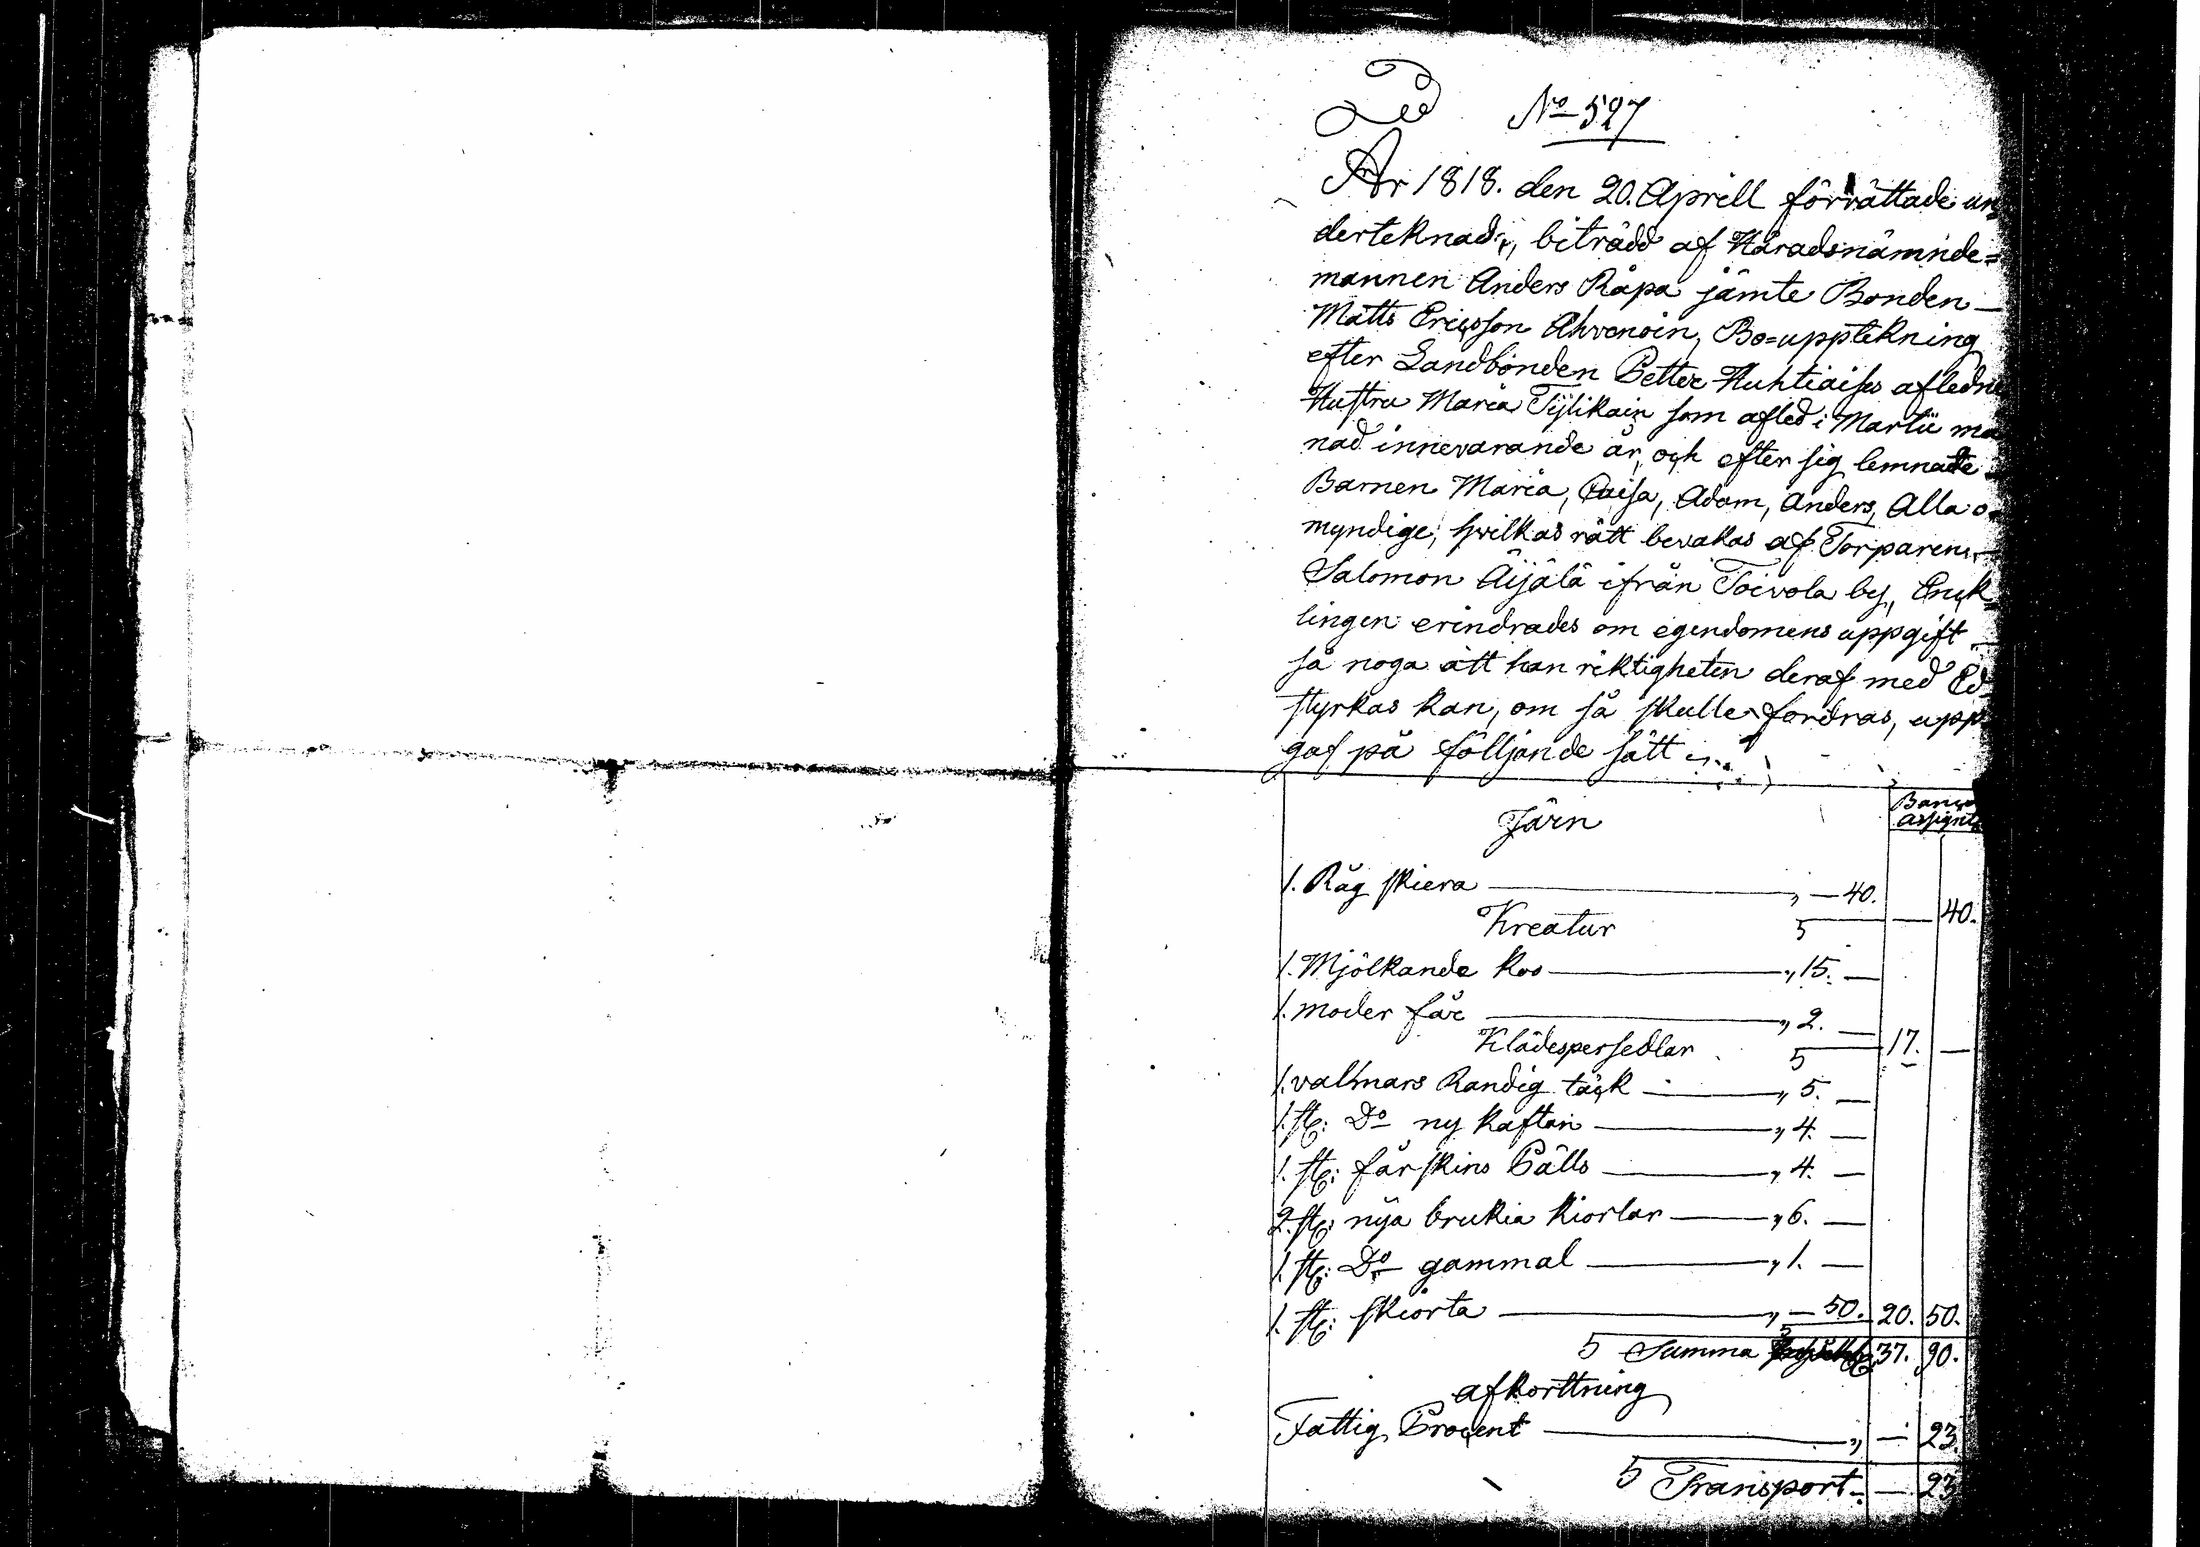 No 527
År 1818. den 20. Aprill förrättade un
derteknad, biträdd af Häradsnämnde=
mannen Anders Råpa jämte Bonden
Matts Ericsson Ahvenoin, Bo=upptekning
efter Landbonden Petter Huhtiaises afledne
Hustru Maria Tijlikain som afled i Martii må
nad innevarande år, och efter sig lemnade
Barnen Maria, Caisa, Adam, Anders, Alla o-
myndige, hvilkas rätt bevakas af Torparen
Salomon Äijälä ifrån Toivola by, Enck-
lingen erindrades om egendomens uppgift
så noga att han riktigheten deraf med Ed
styrkas kan, om så skulle fordras, upp
gaf på följande sätt
Banco
assignt
Järn
1. Råg skiera „ — 40.
— 40.
Kreatur
1. Mjölkande Koo „ 15. —
1. moder får „ 2. —
17. —
Klädespersedlar
1. valmars Randig täck „ 5. —
1. st: Do ny kaftan „ 4. —
1. st: fårskins Pälls „ 4. —
2. st: nya brukia kiortlar „ 6. —
1. st: Do gammal „ 1. —
1. st: skiorta „ — 50. 20. 50.
Summa 37. 90.
afkorttning
Fattig Procent „ — 23.
Transport — 23